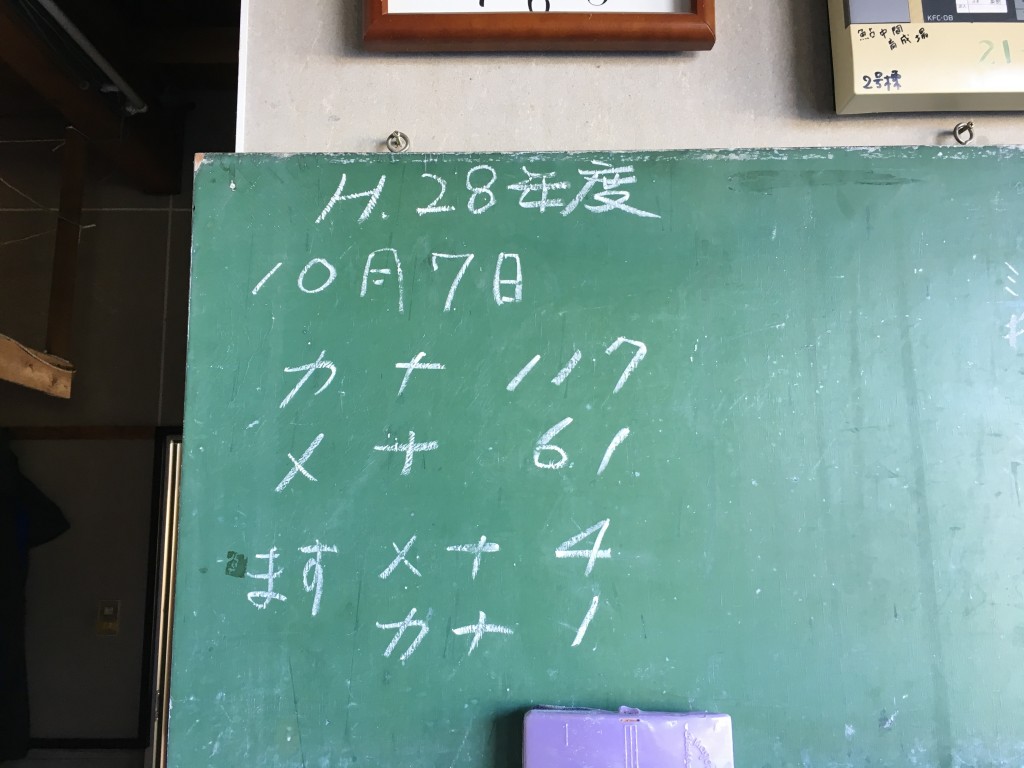 KFC-DB
鮎中間
育成場
2号棟
H.28年度
10月7日
カナ 117
メナ 61
ます メナ 4
カナ 1